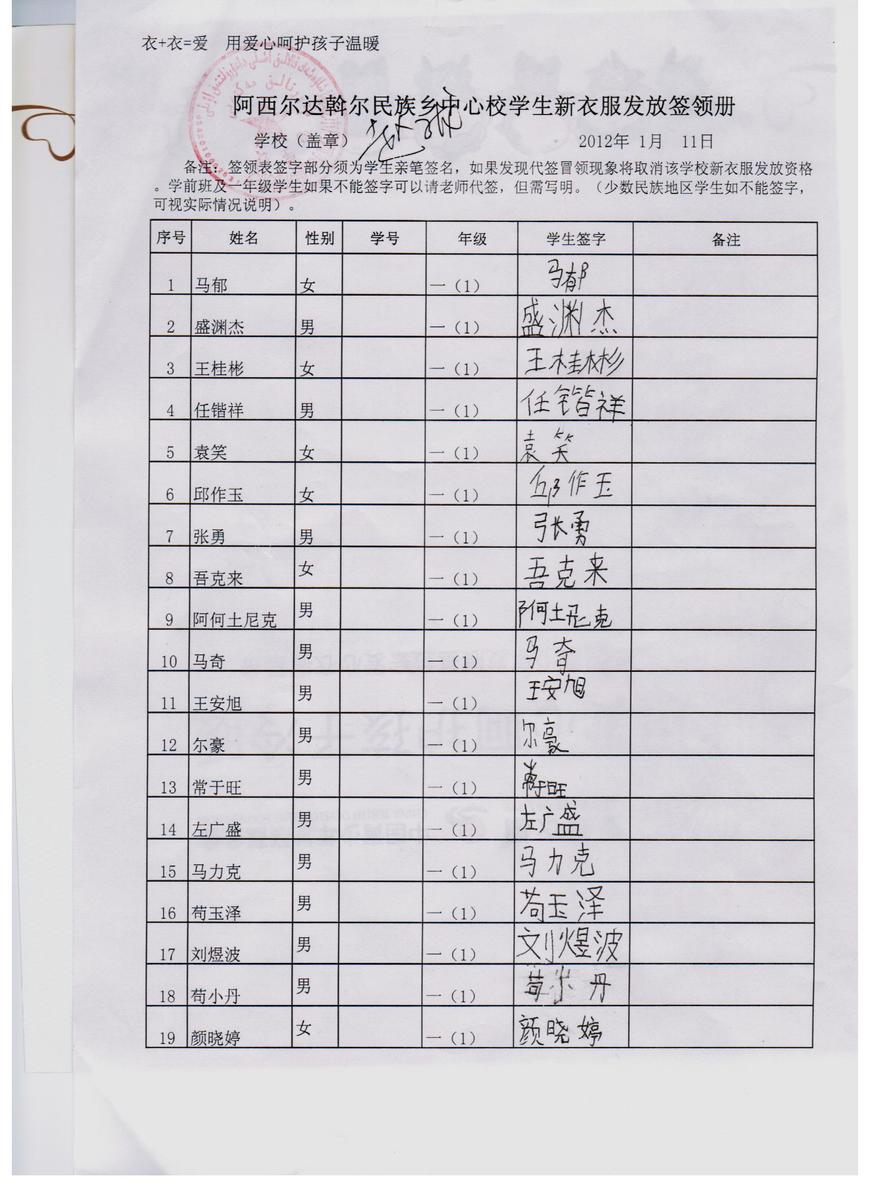 衣+衣=爱 用爱心呵护孩子温暖
阿西尔达斡尔民族乡中心校学生新衣服发放签领册
学校（盖章） 2012年 1月 11日
备注：签领表签字部分须为学生亲笔签名，如果发现代签冒领现象将取消该学校新衣服发放资格
。学前班及一年级学生如果不能签字可以请老师代签，但需写明。（少数民族地区学生如不能签字，
可视实际情况说明）。
序号 姓名 性别 学号 年级 学生签字 备注
1 马郁 女 一（1） 马郁
2 盛渊杰 男 一（1） 盛渊杰
3 王桂彬 女 一（1） 王桂彬
4 任锴祥 男 一（1） 任锴祥
5 袁笑 女 一（1） 袁笑
6 邱作玉 女 一（1） 邱作玉
7 张勇 男 一（1） 张勇
8 吾克来 女 一（1） 吾克来
9 阿何土尼克 男 一（1） 阿何土尼克
10 马奇 男 一（1） 马奇
11 王安旭 男 一（1） 王安旭
12 尔豪 男 一（1） 尔豪
13 常于旺 男 一（1） 常于旺
14 左广盛 男 一（1） 左广盛
15 马力克 男 一（1） 马力克
16 苟玉泽 男 一（1） 苟玉泽
17 刘煜波 男 一（1） 刘煜波
18 苟小丹 男 一（1） 苟小丹
19 颜晓婷 女 一（1） 颜晓婷